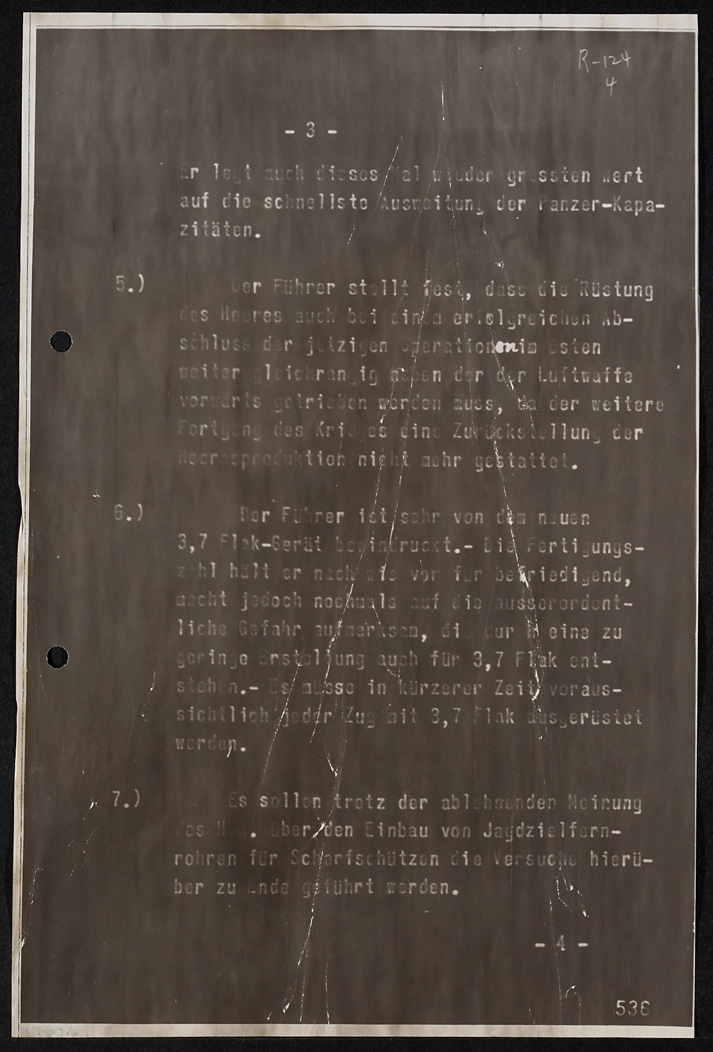 R-124
4
- 3 -
Er legt auch dieses Mal wieder grössten Wert
auf die schnellste Ausweitung der Panzer-Kapa-
zitäten.
5.) Der Führer stellt fest, dass die Rüstung
des Heeres auch bei einem erfolgreichen Ab-
schluss der jetzigen Operationen im Osten
weiter gleichrangig neben der der Luftwaffe
vorwärts getrieben werden muss, da der weitere
Fortgang des Krieges eine Zurückstellung der
Heeresproduktion nicht mehr gestattet.
6.) Der Führer ist sehr von dem neuen
3,7 Flak-Gerät beeindruckt.- Die Fertigungs-
zahl hält er nach wie vor für befriedigend,
macht jedoch nochmals auf die ausserordent-
liche Gefahr aufmerksam, die durch eine zu
geringe Erstellung auch für 3,7 Flak ent-
stehen.- Es müsse in kürzerer Zeit voraus-
sichtlich jeder Zug mit 3,7 Flak ausgerüstet
werden.
7.) Es sollen trotz der ablehnenden Meinung
des über den Einbau von Jagdzielfern-
rohren für Scharfschützen die Versuche hierü-
ber zu Ende geführt werden.
- 4 -
536